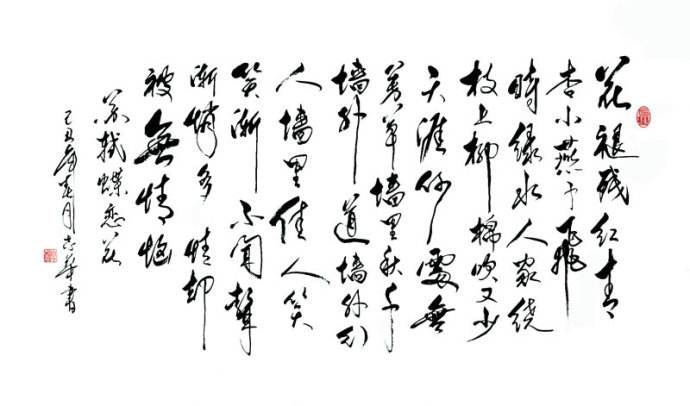 花褪残红青
杏小燕子飛
時绿水人家绕
枝上柳棉吹又少
天涯何處無
芳草墙里秋千
墙外道墙外行
人墙里佳人笑
笑渐不闻聲
渐悄多情却
被無情恼
苏轼蝶恋花
己丑年春月志华書